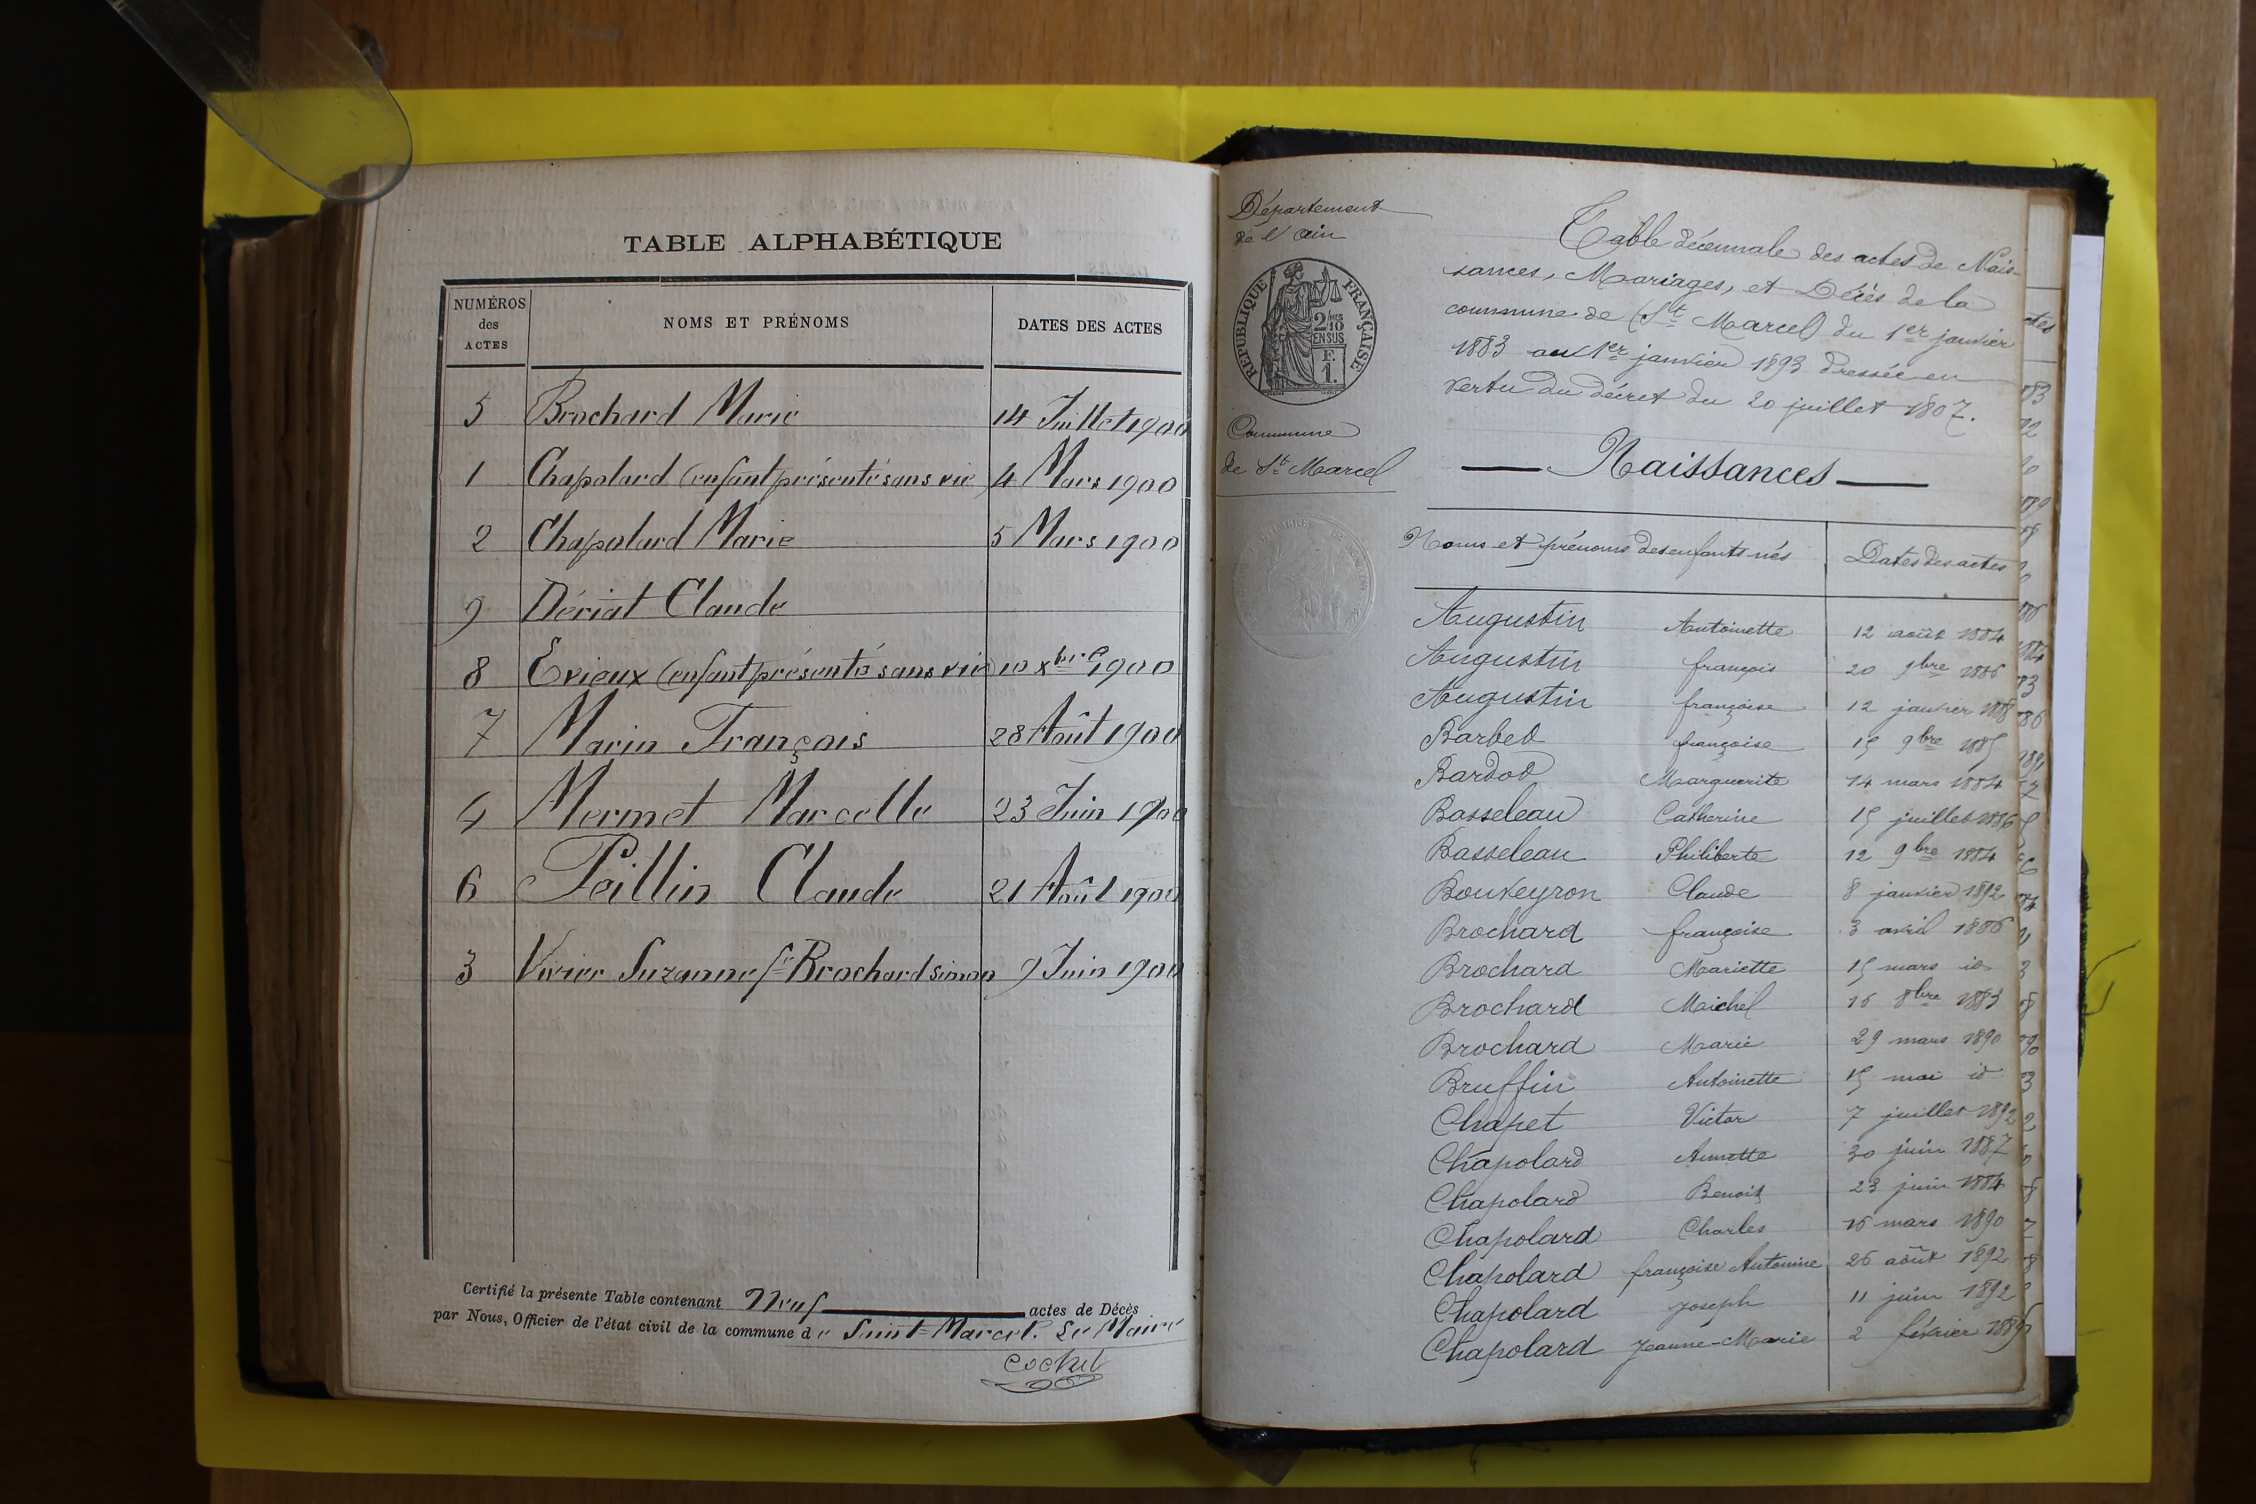 TABLE ALPHABÉTIQUE
NUMÉROS des ACTES NOMS ET PRÉNOMS DATES DES ACTES
5 Brochard Marie 14 Juillet 1900
1 Chapolard (enfant présenté sans vie) 4 Mars 1900
2 Chapolard Marie 5 Mars 1900
9 Dériat Claude
8 Evieux (enfant présenté sans vie) 10 xbre 1900
7 Marin François 28 Août 1900
4 Mermet Marcelle 23 Juin 1900
6 Peillin Claude 21 Août 1900
3 Vivier Suzanne fe Brochard Simon 9 Juin 1900
Certifié la présente Table contenant Neuf actes de Décès
par Nous, Officier de l'état civil de la commune de Saint-Marcel. Le Maire
Cochet
Département
de l'Ain
RÉPUBLIQUE FRANÇAISE
2/10
EN SUS
F.
1.
Commune
de St Marcel
Table décennale des actes de Nais-
sances, Mariages, et Décès de la
commune de (St Marcel) du 1er janvier
1883 au 1er janvier 1893 Dressée en
vertu du décret du 20 juillet 1807.
Naissances
Noms et prénoms des enfants nés Dates des actes
Augustin Antoinette 12 août 1884
Augustin françois 20 9bre 1886
Augustin françoise 12 janvier 1888
Barbet françoise 15 9bre 1885
Bardod Marguerite 14 mars 1884
Basseleau Catherine 15 juillet 1886
Basseleau Philiberte 12 9bre 1884
Bouveyron Claude 8 janvier 1892
Brochard françoise 3 avril 1886
Brochard Mariette 15 mars id
Brochard Michel 16 8bre 1883
Brochard Marie 29 mars 1890
Bruffin Antoinette 15 mai id
Chapet Victor 7 juillet 1892
Chapolard Annette 30 juin 1887
Chapolard Benoit 23 juin 1884
Chapolard Charles 16 mars 1890
Chapolard françoise Antonine 26 août 1892
Chapolard joseph 11 juin 1892
Chapolard Jeanne-Marie 2 février